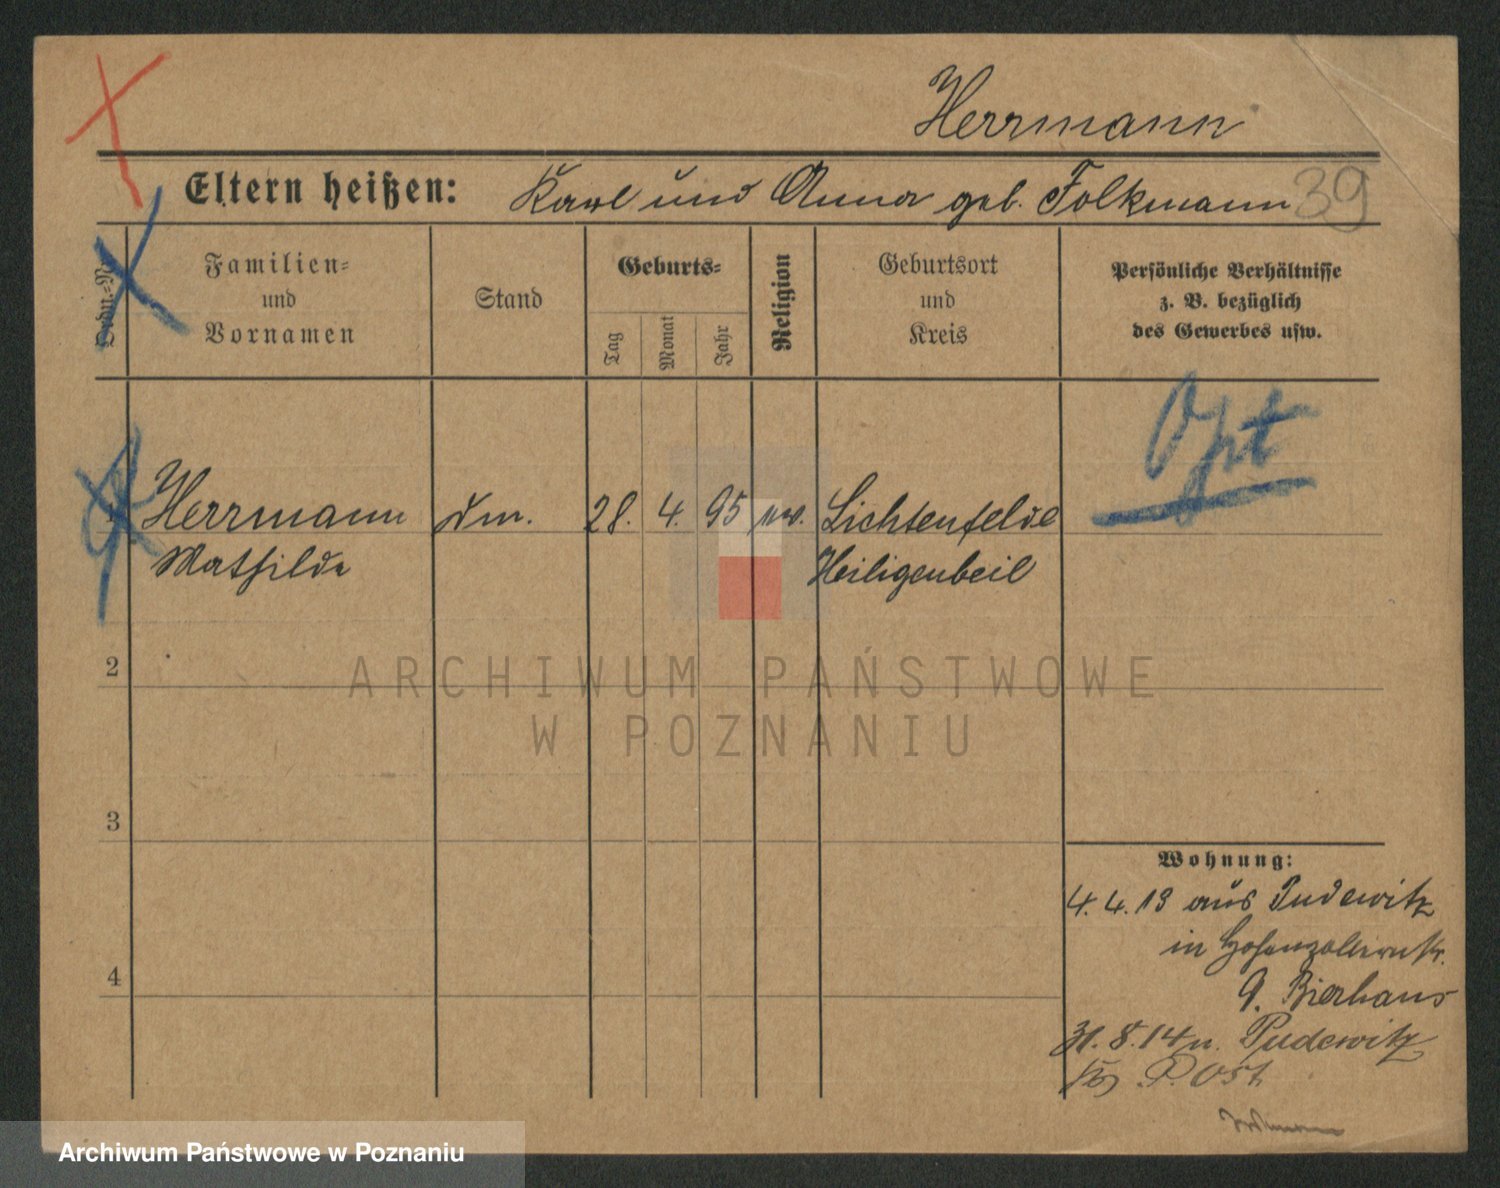 Herrmann
Eltern heißen: Karl und Anna geb. Folkmann 39
Ordn.-Nr.
Familien-
und
Vornamen
Stand
Geburts-
Tag
Monat
Jahr
Religion
Geburtsort
und
Kreis
Persönliche Verhältnisse
z. B. bezüglich
des Gewerbes usw.
Opt
1 Herrmann 28. 4. 95 Lichtenfelde
Mathilde Heiligenbeil
2
ARCHIWUM PAŃSTWOWE
W POZNANIU
3
Wohnung:
4. 4. 13 aus Pudewitz
in Hohenzollernstr.
9. Bierhaus
4
31. 8. 14 n. Pudewitz
Post
Archiwum Państwowe w Poznaniu